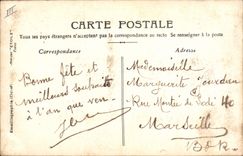 CARTE POSTALE
Tous les pays étrangers n'acceptent pas la correspondance au recto Se renseigner à la poste
Correspondance
Adresse
Bonne fête et
meilleurs souhaits
à l'an que ven
Mademoiselle
Marguerit Jourdan
Rue Montée de 40
Marseille
B D R